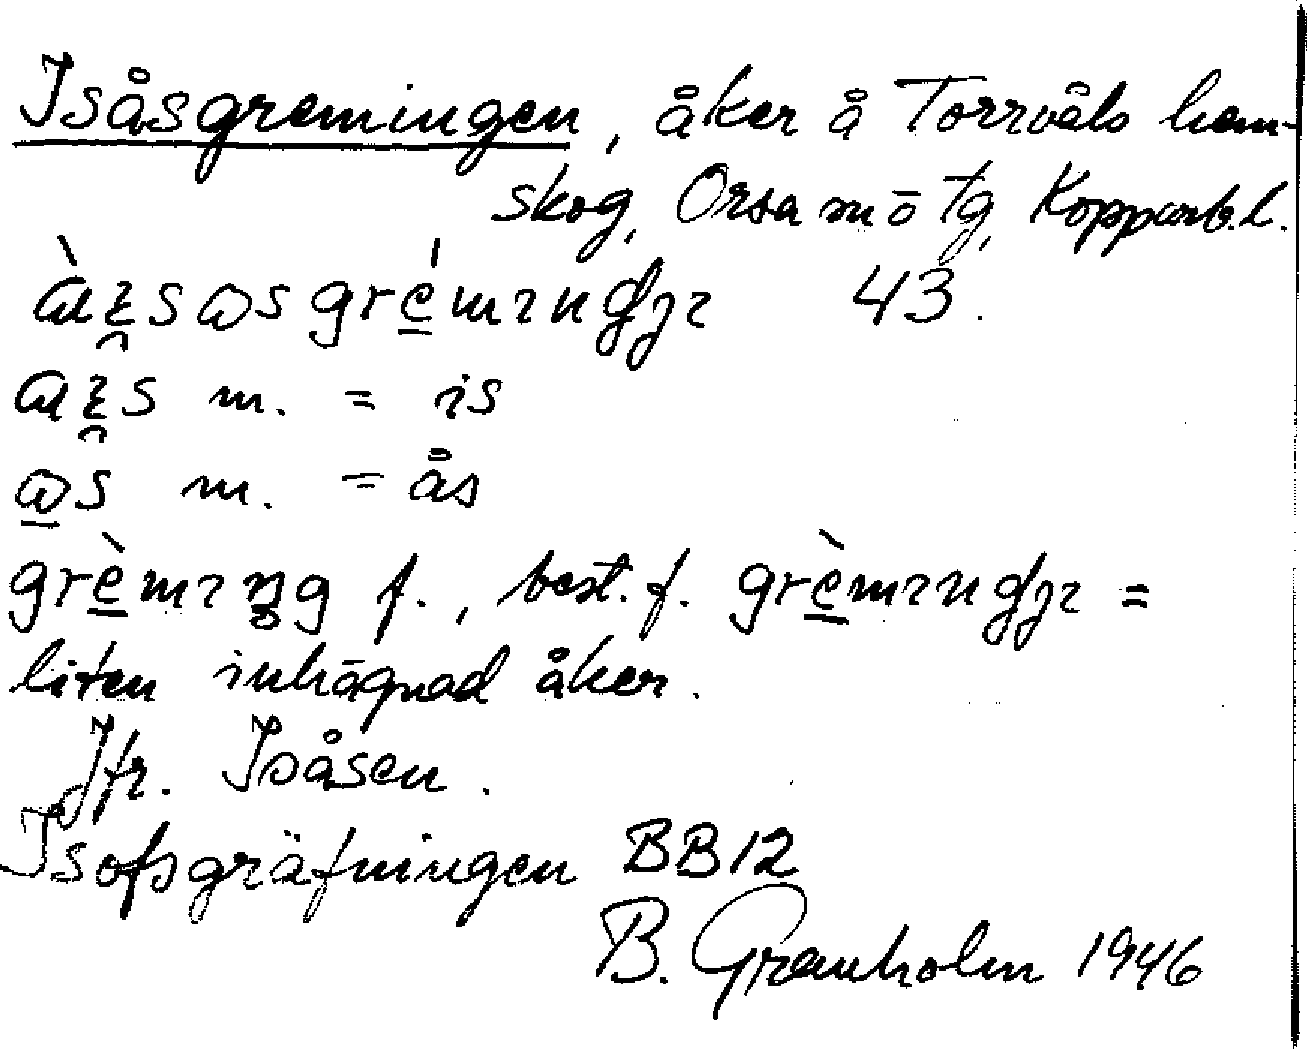 Isåsgremingen, åker å Torrvåls hem-
skog, Orsa m ö tg, Kopparb. l.
àı̯sɷsgrémıngjı 43.
aı̯s m. = is
ɷs m. = ås
grèmıŋg f., best. f. grèmıngjı =
liten inhägnad åker.
Jfr. Isåsen.
Isofsgräfningen BB12
B. Granholm 1946